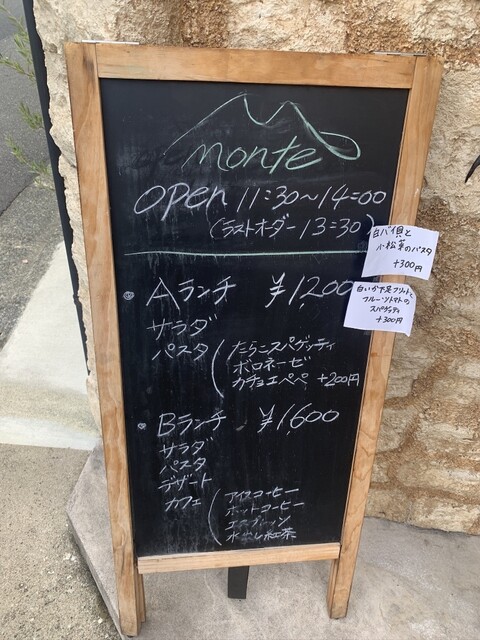 monte
open 11:30〜14:00
(ラストオーダー 13:30)
白バイ貝と
小松菜のパスタ
+300円
白いか下足フリットと
フルーツトマトの
スパゲッティ
+300円
Aランチ ¥1200
サラダ
パスタ
たらこスパゲッティ
ボロネーゼ
カチョエペペ +200円
Bランチ ¥1,600
サラダ
パスタ
デザート
カフェ
アイスコーヒー
ホットコーヒー
水出し紅茶